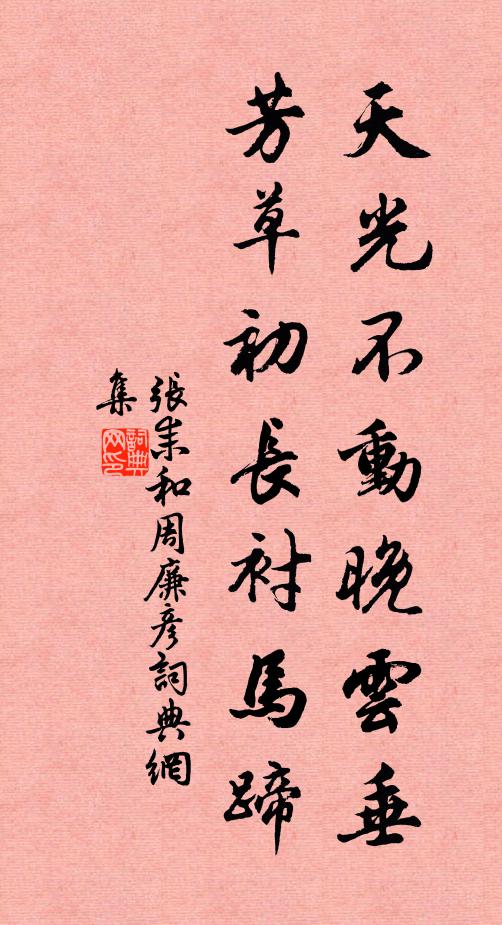 天光不動晚雲垂
芳草初長衬馬蹄
張耒和周廉彥詞典網
集
詞典
网印